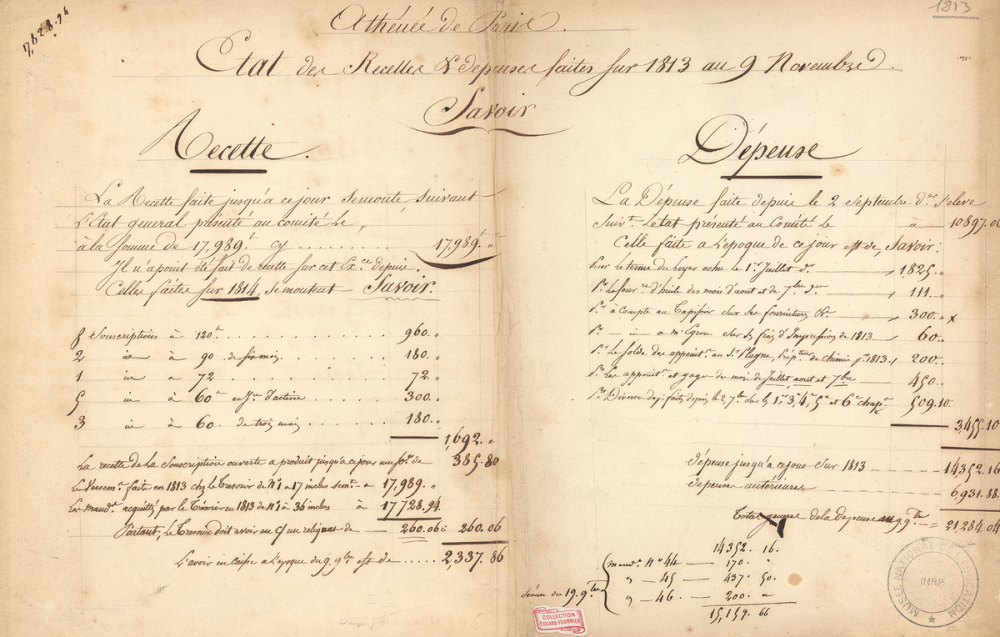 7,828.94
1813
Athénée de Paris.
Etat des Recettes & depenses faites sur 1813 au 9 Novembre d.
Savoir
Recette.
La Recette faite jusqu'a ce jour se monte, suivant
l'Etat general présenté au comité le,
à la somme de 17,989.f cy .......... 17,989.f "
Il n'a point été fait de recette sur cet Ex.ce depuis.
Celles faites sur 1814, se montent Savoir.
8 Souscriptions à 120.f .......... 960. "
2 in à 90. de six mois .......... 180. "
1 in à 72 .......... 72. "
5 in à 60 .......... 300. "
3 in à 60. de trois mois .......... 180. "
1,692. "
La recette de la souscription ouverte a produit jusqu'a ce jour de 385.80
Le Versem.t faite en 1813 chez le Tresorier de N.o 1 a 17 inclus a 17,989. "
Les mand.ts acquittés par le Trésorier en 1813 de N.o 1 à 36 inclus à 17,728.94
Partant, le Tresorier doit avoir en reliquat de 260.06 260.06
L'avoir en caisse a l'époque du 9. 9.bre est de ..... 2,337.86
Dépense
La Dépense faite depuis le 2 Septembre d.er s'eleve
Suiv.t l'etat présenté au Comité le à 10897.06
Celle faite a l'époque de ce jour est de, Savoir:
Pour le terme du loyer echu le 1.er Juillet d.er 1,825. "
P.r d'huile des mois d'aout et de 7.bre d.er 111. "
P.r à compte au Tapissier sur ses fournitures 300. " x
P.r in a M. Gron sur frais d'Impression de 1813 60. "
P.r le solde des appoint.s au S.r Plagne, prép.teur de chimie p.r 1813 200. "
P.r les appoint.s et gages du mois de Juillet, aout et 7.bre 450. "
P.r Diverses dep. faites depuis le 2. 7.bre sur les 1.er 3.e 4.e 5.e et 6.e chap. 509.10.
3,455.10
dépense jusqu'a ce jour sur 1813 14352.16
depenses antérieures 6,931.88
Total general de la Depense au 9 9.bre 21,284.04
14352. 16.
mand.ts N.o 44 — 170. "
" — 45 — 437. 50.
Séance du 19. 9.bre " — 46. — 200. "
15,159. 66
COLLECTION
EDGARD FOURNIER
MUSÉE NATIONAL DE L'EDUCATION
INRP